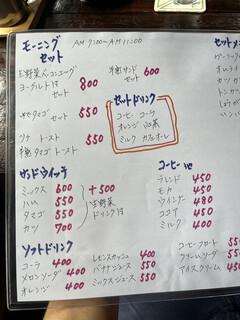 モーニング
セット
AM 9:00〜AM 11:00
ヨーグルト付
セット 800
半熟サンド
セット 600
ゆでタマゴ
セット 550
ツナ トースト 550
半熟タマゴ トースト 550
セットドリンク
コーヒー コーラ
オレンジ 紅茶
ミルク カフェオーレ
サンドウイッチ
ミックス 600
ハム 550
タマゴ 550
カツ 700
+500
生野菜
ドリンク付
コーヒー
ブレンド 450
モカ 450
ウインナー 480
ココア 450
ミルク 400
ソフトドリンク
コーラ 400
メロンソーダ 400
オレンジ 400
レモンスカッシュ 400
バナナジュース 550
ミックスジュース 550
コーヒーフロート 550
クリームソーダ 550
アイスクリーム 450